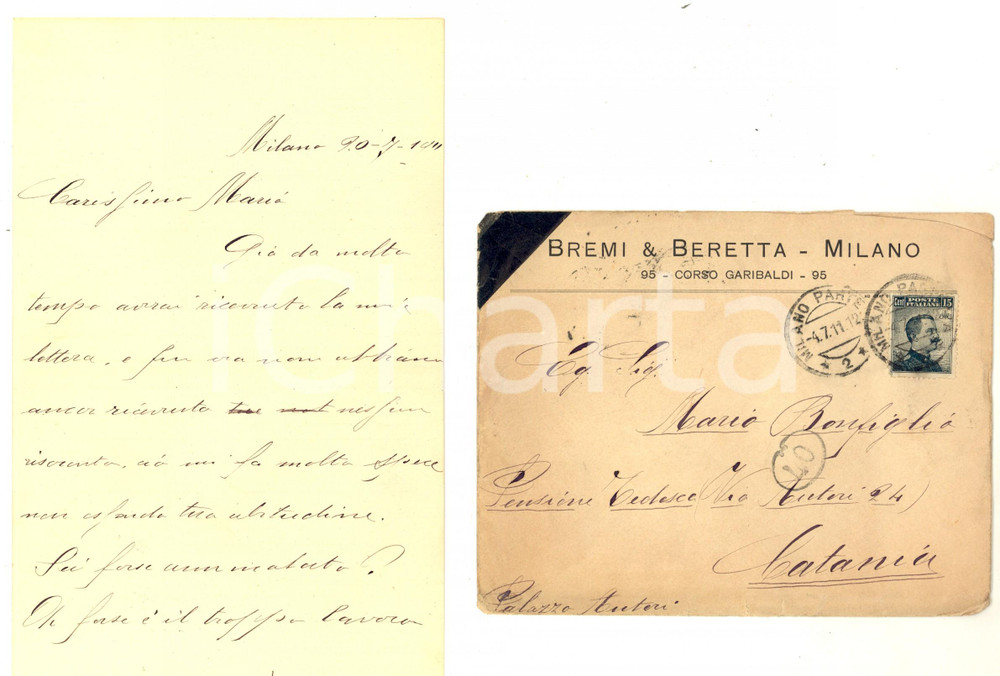 Milano 20-7-1911
Carissimo Mario
Già da molto
tempo avrai ricevuto la mia
lettera, e fin ora non abbiamo
ancor ricevuto nessun
risconto, ciò mi fa molto specie
non essendo tua abitudine.
Sei forse ammalato?
Oh forse è il troppo lavoro
BREMI & BERETTA - MILANO
95 - CORSO GARIBALDI - 95
MILANO PART
4.7.11.12
2
MILANO
POSTE ITALIANE
Cent 15
Eg. Sig.
Mario Bonfiglio
40
Pensione Tedesca (Via Autori 24)
Catania
Palazzo Autori
iCharta